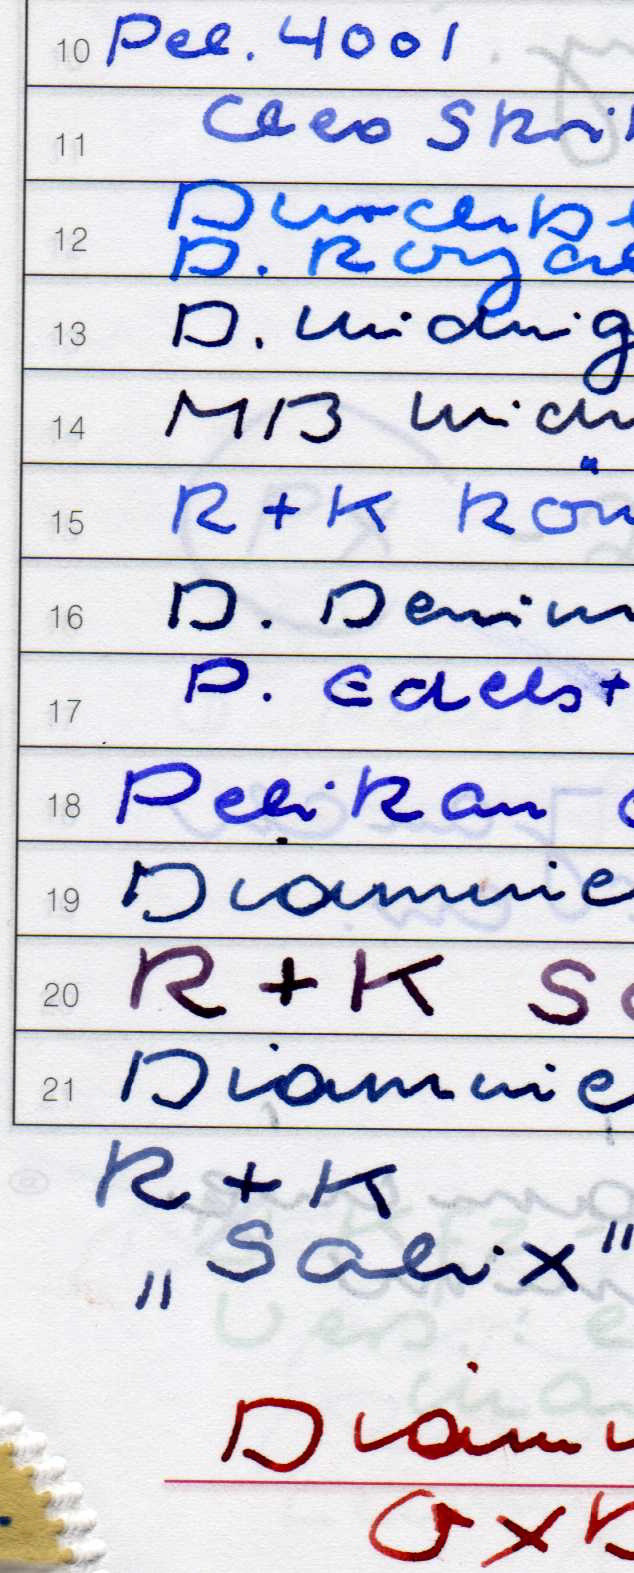 10 Pel. 4001
11 Cleo Skri
12 Durchb
D. Royal
13 D. Midnig
14 MB Midn
15 R+K Kön
16 D. Denim
17 P. Edelst
18 Pelikan
19 Diamine
20 R+K S
21 Diamine
R+K
„Salix"
Diam
Oxb